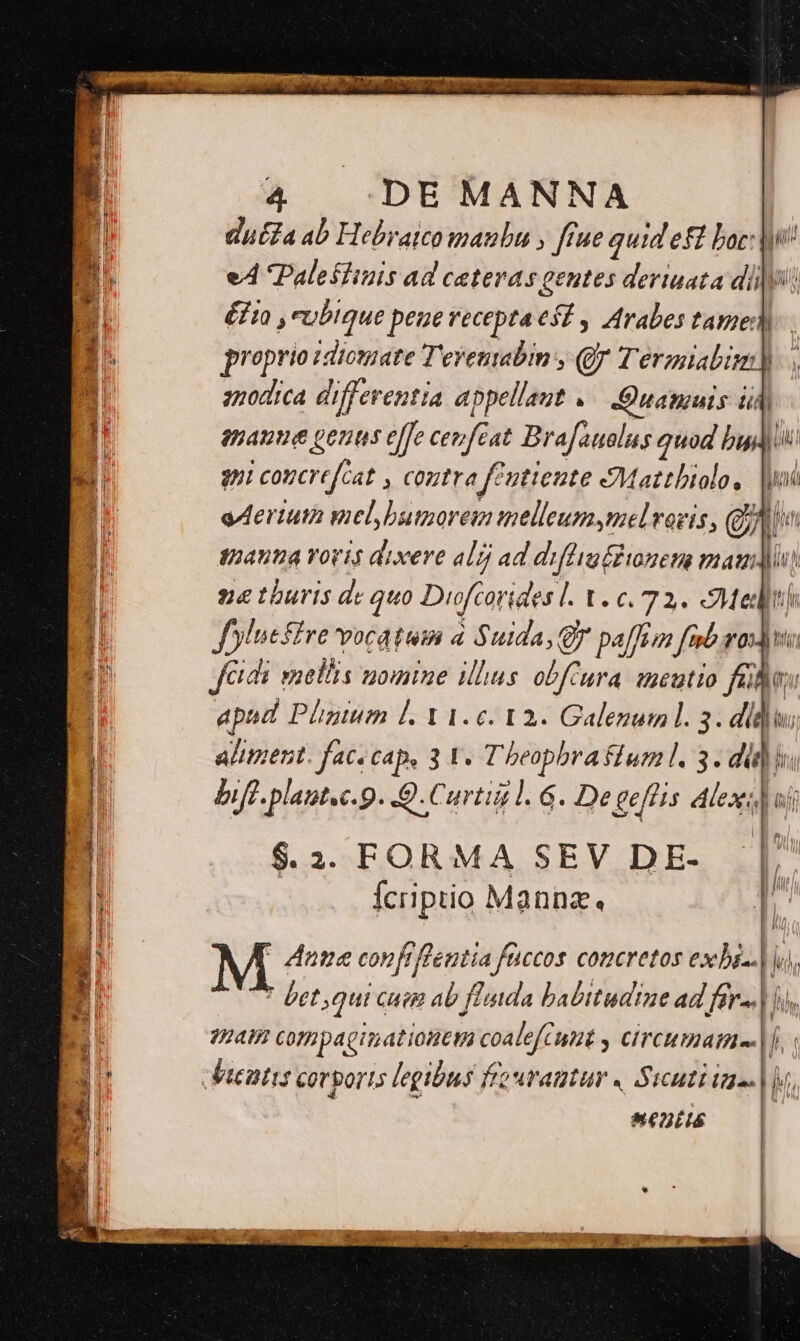 4 DE MANNA
ducta ab Hebraico manhu, ſiue quid eſt hoc:
A Paleſtinis ad cæteras gentes deriuata di
ctio, vbique pene recepta eſt, Arabes tamen
proprio idiomate Tereniabin, & Termiabin
modica differentia appellant. Quamuis
mannæ genus eſſe cenſeat Braſauolus quod
mi concreſcat, contra ſentiente Matthiolo.
Aerium mel, humorem melleum, mel roris, &
manna roris dixere alij ad diſtinctionem man
næ thuris de quo Dioſcorides l. 1. c. 72. Mel
ſylueſtre vocatum à Suida, & paſſim ſub
ſcidi mellis nomine illius obſcura mentio
apud Plinium l. 11. c. 12. Galenum l. 3. de
aliment. fac. cap. 31. Theophraſtum l. 3. de
hiſt. plant. c. 9. Q. Curtiū l. 6. De geſtis Alex.
§. 2. FORMA SEV DE-
ſcriptio Mannæ.
MAnnæ conſiſtentia ſuccos concretos exhi-
bet, qui cum ab fluida habitudine ad fir-
mam compaginationem coaleſcunt, circumam-
bientis corporis legibus figurantur. Sicuti in-
mentis